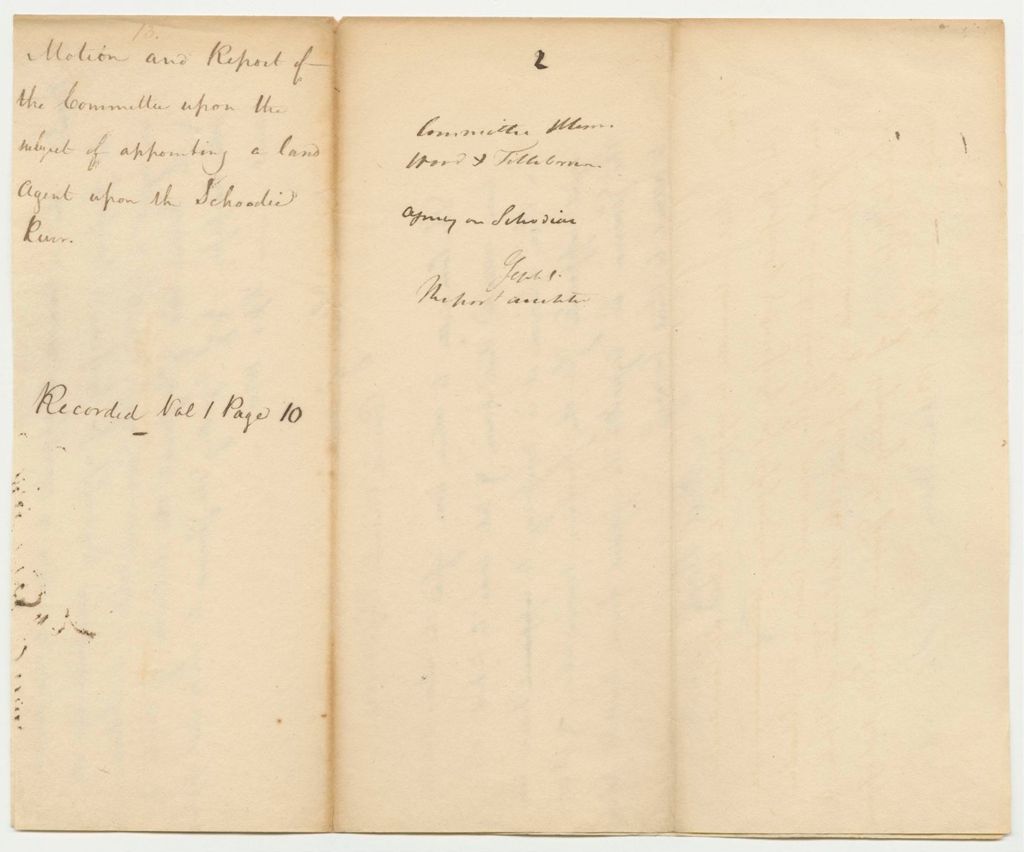 13.
Motion and Report of
the Committee upon the
subject of appointing a land
Agent upon the Schoodic
River.
Recorded Vol 1 Page 10
2
Committee Messrs.
Wood & Tillebrown
Agency on Schodiac
Report